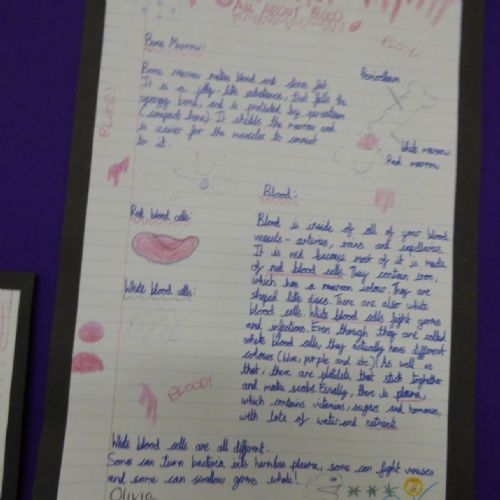 ALL ABOUT BLOOD
BLOOD!
Bone Marrow:
Periosteum
Bone marrow makes blood and stores fat.
It is a jelly-like substance, that fills the
spongy bone, and is protected by periosteum
(compact bone). It shields the marrow and
is easier for the muscles to connect
to it.
White marrow
Red marrow
BLOOD!
Blood:
Red blood cells:
White blood cells:
Blood is inside of all of your blood
vessels - arteries, veins and capillaries.
It is red because most of it is made
of red blood cells. They contain iron,
which has a maroon colour. They are
shaped like discs. There are also white
blood cells. White blood cells fight germs
and infections. Even though they are called
white blood cells, they actually have different
colours (blue, purple and etc.)! As well as
that, there are platelets that stick together
and make scabs. Finally, there is plasma,
which contains vitamins, sugars and hormones,
with lots of water and nutrients.
BLOOD!
White blood cells are all different.
Some can turn bacteria into harmless plasma, some can fight viruses
and some can swallow germs whole!
Olivia